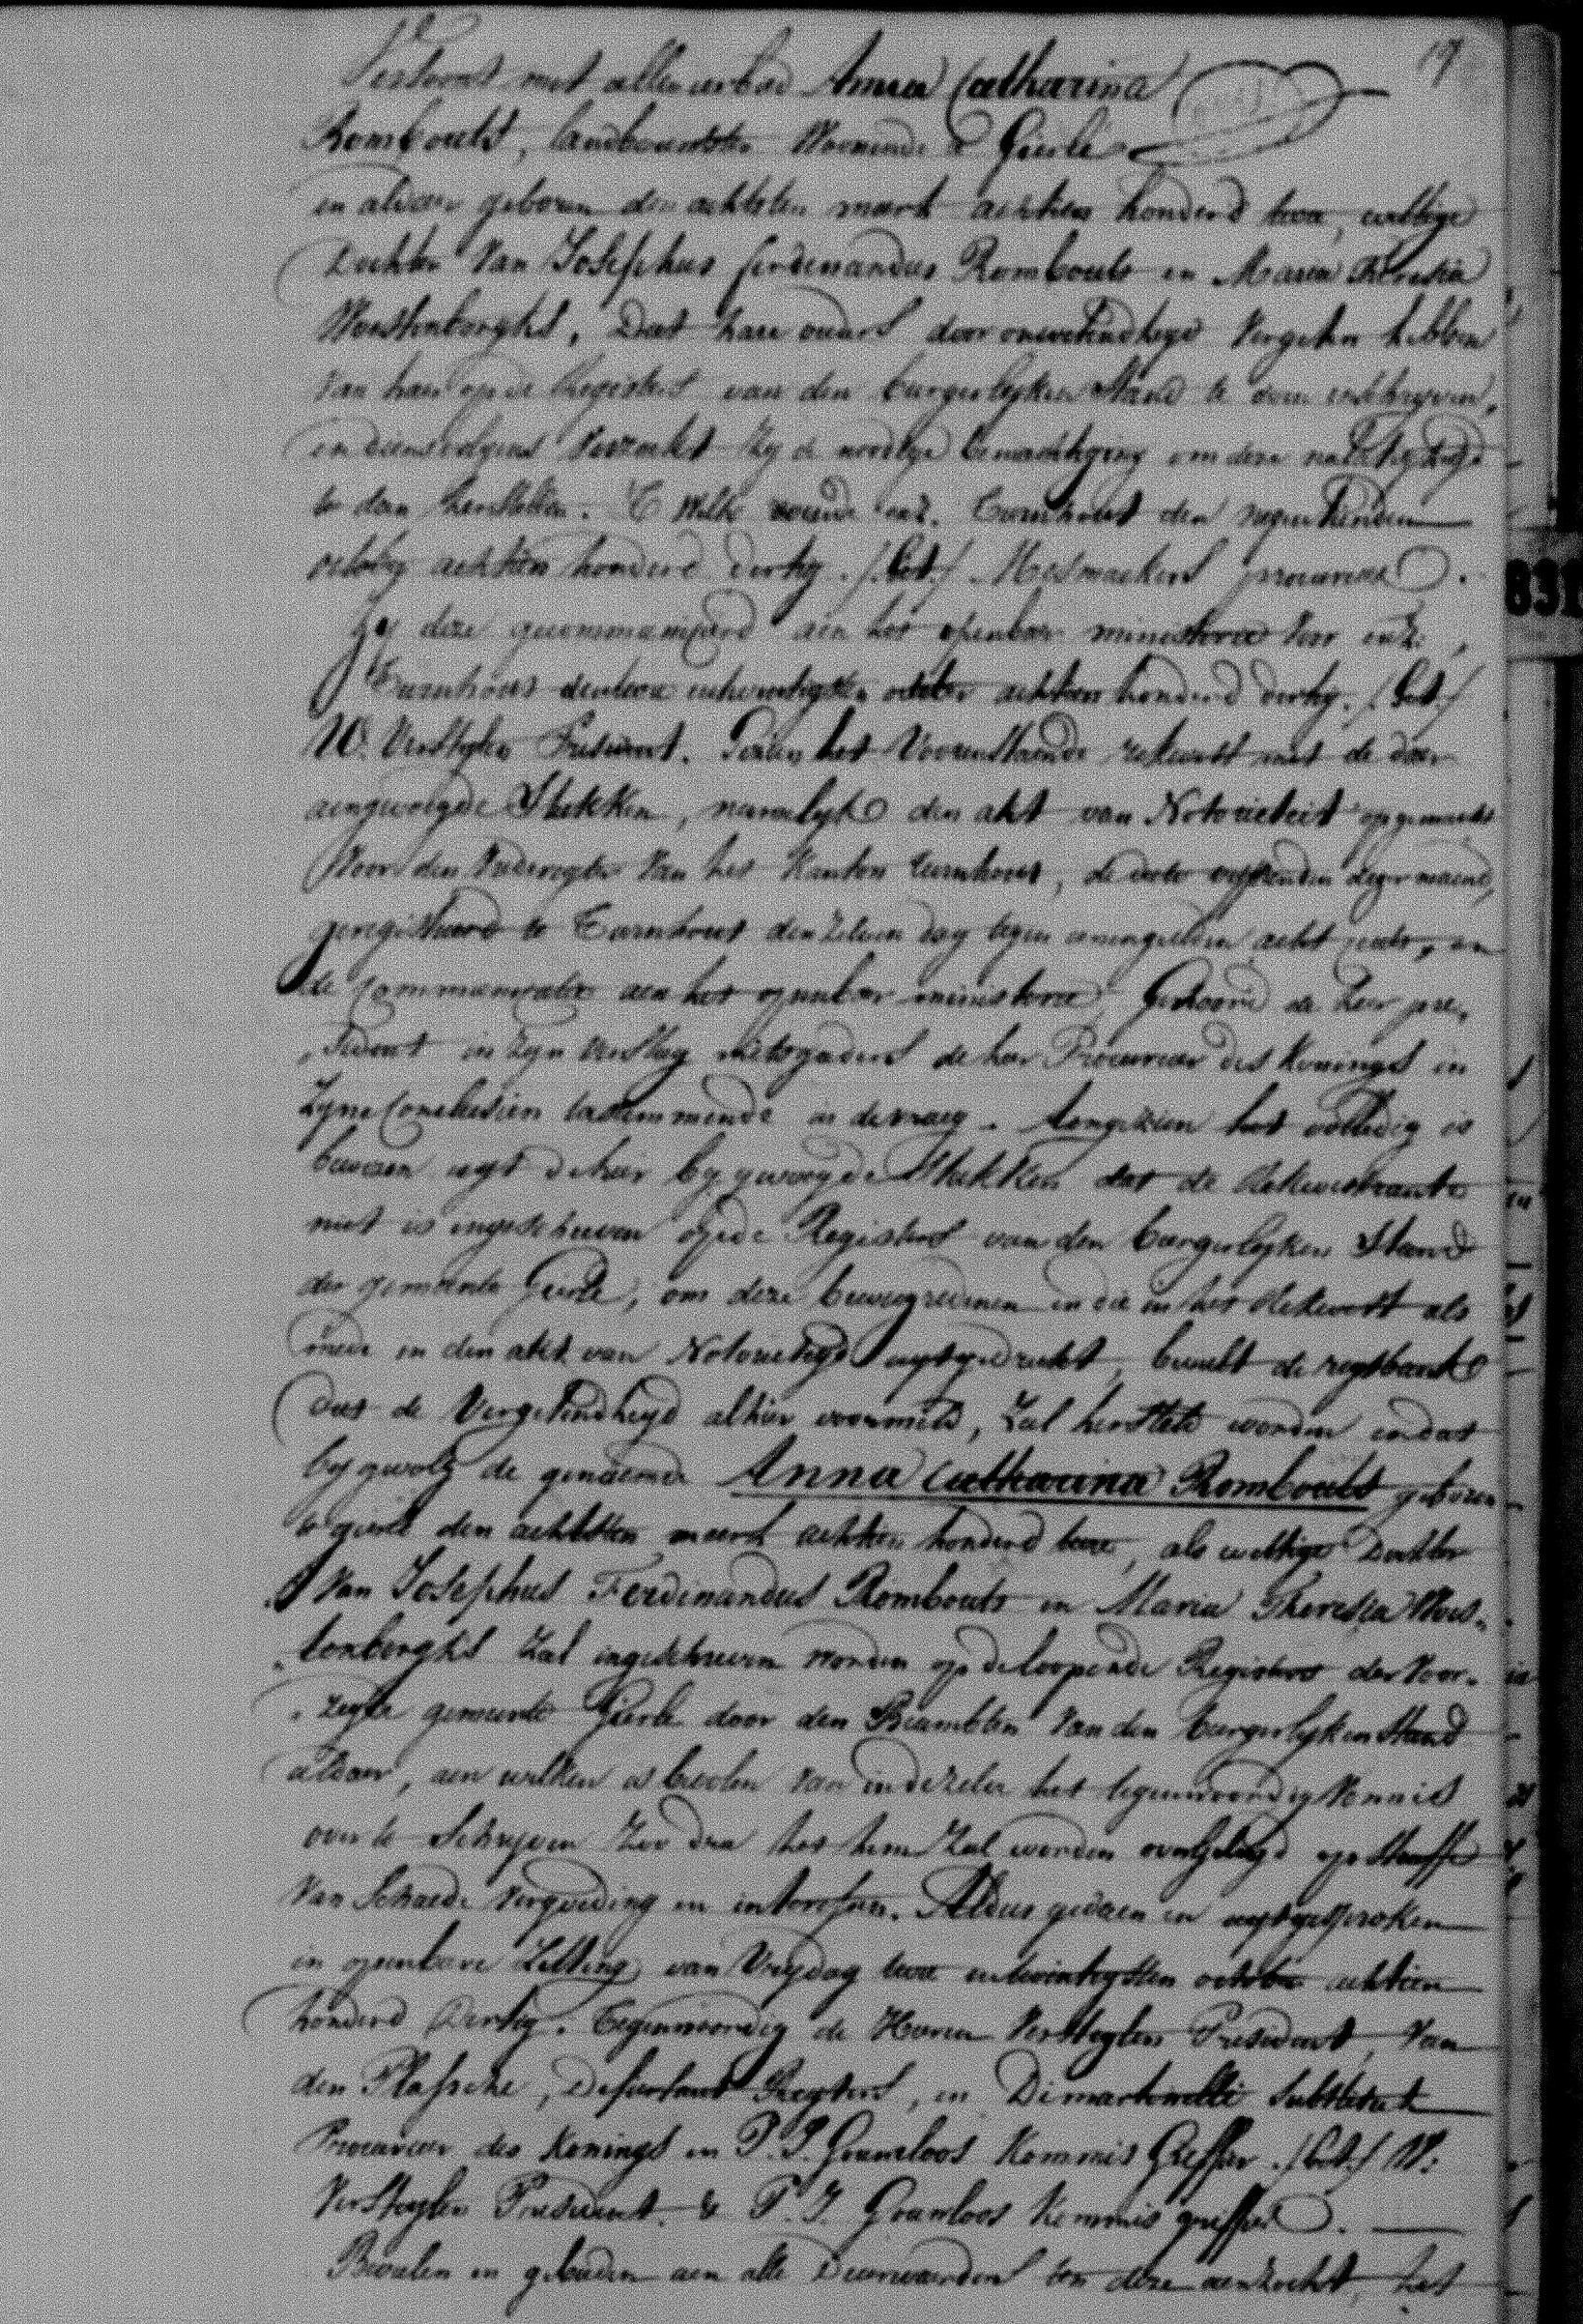 19
Vertoont met allen eerbied Anna Catharina
Rombouts, landbouwster Woonende te Gierle
en aldaer geboren den achtsten meert achttien honderd twee, wettige
Dochter Van Josephus ferdinandus Rombouts en Maria Theresia
Woestenborghs, Dat hare ouders door onwetendheyd Vergeten hebben
van haer op de Registers van den burgerlyken Stand te doen inschryven,
en diensvolgens Verzoekt zy de noodige bemachtiging om deze nalatigheyd
te doen herstellen. T Welk doende enz. Turnhout den negentienden
october achttien honderd dertig. /:Get:/ Mesmaekers procureur.
Zy deze gecommuniceerd aen het openbaer ministerie Voor enz.,
Turnhout den twee entwintigsten october achttien honderd dertig. /:Get:/
W. Versteylen President. Gezien het Voorenstaende rekwest met de daer
aengevoegde Stukken, namelyk den akt van Notorieteit opgemaekt
Voor den Vrederegter Van het Kanton Turnhout, de dato vyftienden dezer maend,
geregistreerd te Turnhout den zelven dag tegen eenengulden acht cents, en
de Communicatie aen het openbaer ministerie, Gehoord de heer pre-
sident in zyn Verslag mitsgaders de heer Procureur des Konings in
Zyne Conclusien toestemmende in de vraeg. Aengezien het volledig is
bewezen uyt de hier by gevoegde Stukken dat de Rekwestrante
niet is ingeschreven op de Registers van den burgerlyken Stand
der gemeente Gierle, om deze beweegredenen en die in het Rekwest als
mede in den akt van Notorieteyd uytgedrukt, beveelt de regtbank
Dat de Vergetendheyd alhier voormeld, Zal herstelt worden en dat
by gevolg de genaemde Anna Catharina Rombouts geboren
te gierle den achtsten meert achttien honderd twee, als wettige Dochter
Van Josephus Ferdinandus Rombouts en Maria Theresia Woes-
tenborghs Zal ingeschreven worden op de loopende Registers der Voor-
zeyde gemeente Gierle door den Beambten Van den burgerlyken Stand
aldaer, aen welken is bevolen van in dezelve het tegenwoordig Vonnis
over te Schryven Zoo dra het hem Zal worden overgelegd op Straffe
Van Schaede Vergoeding en intressen. Aldus gedaen en uytgesproken
in openbare Zitting van Vrydag twee entwintigsten october achttien
honderd dertig. Tegenwoordig de Heeren Versteylen President, Van
den Plassche, Regters, en Demartinelli Substituut
Procureur des Konings en P. J. Kommis Greffier. /:Get:/ W:
Versteylen President. & P. J. Kommis griffier.
Bevelen en gebieden aen alle Deurwaerders ten deze aenzocht, het